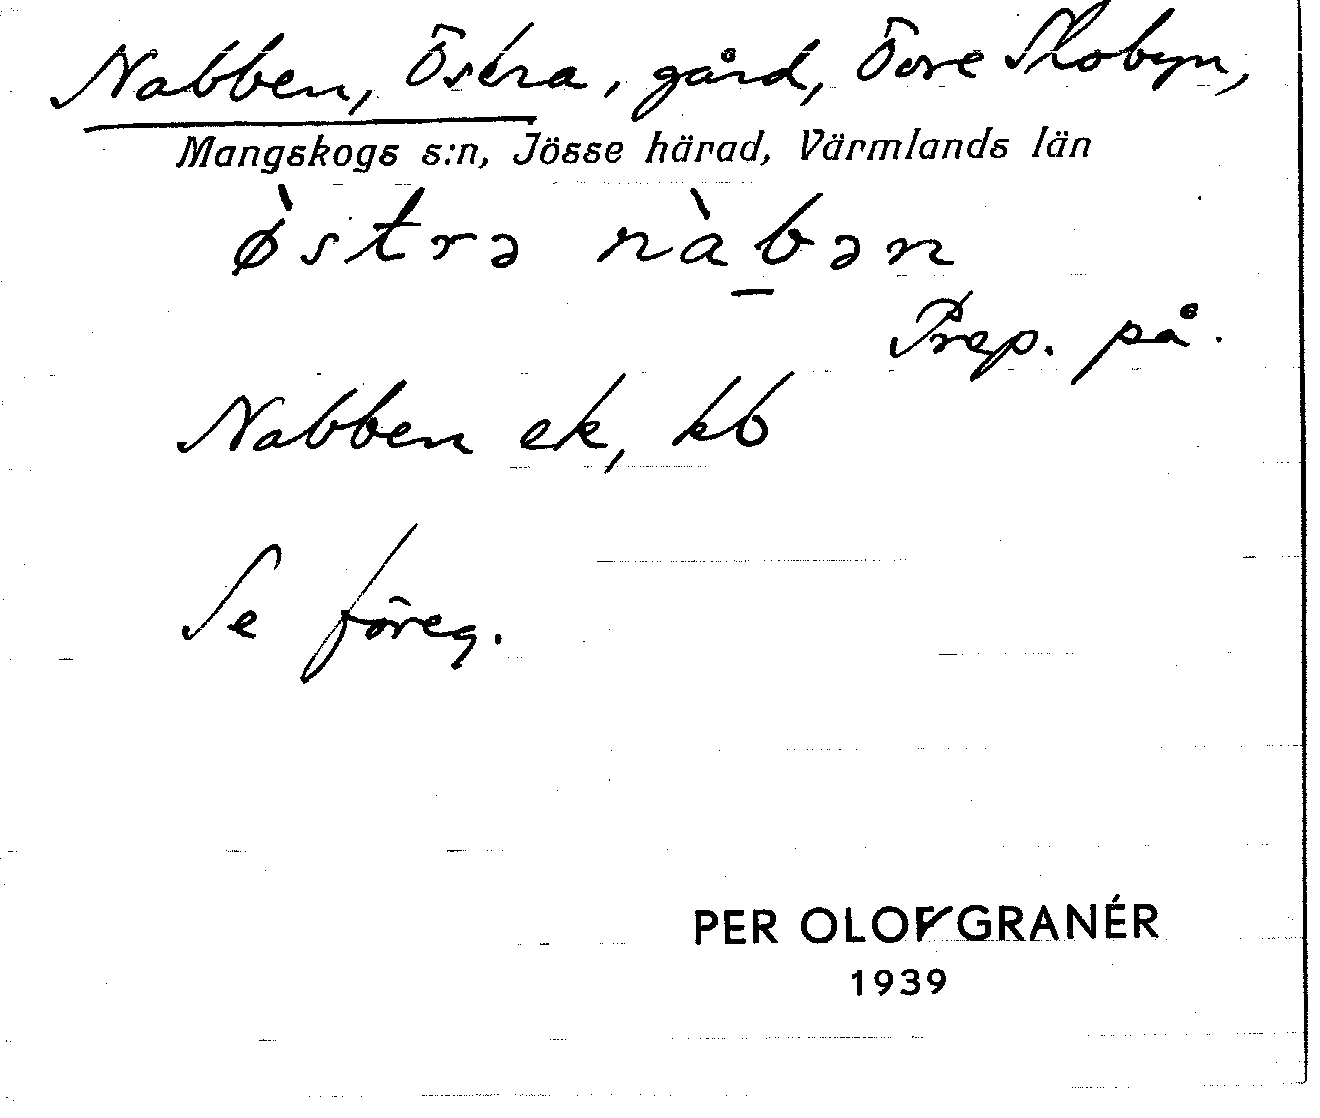 Nabben, Östra, gård, Övre Skobyn,
Mangskogs s:n, Jösse härad, Värmlands län
ø̀strə nàb̠ən
Prep. på.
Nabben ek, kb
Se föreg.
PER OLOF GRANÉR
1939